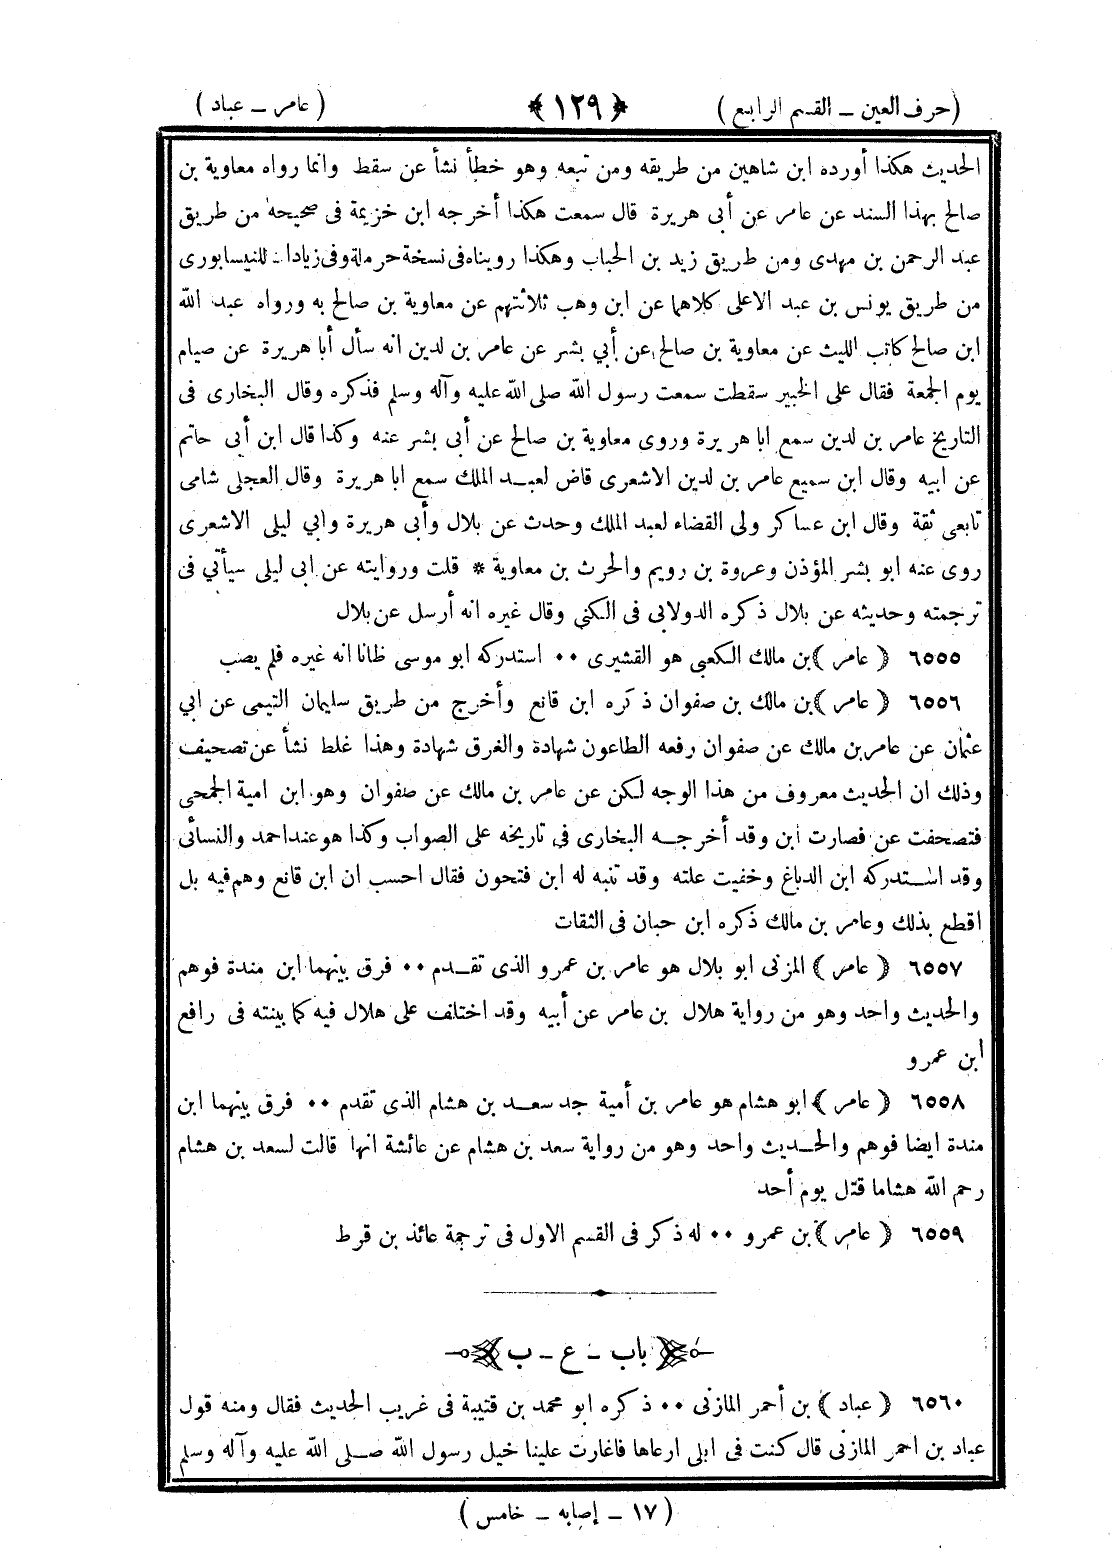 (حرف العين ــ القسم الرابع) ﴿ ١٢٩ ﴾ (عامر ــ عباد)
الحديث هكذا أورده ابن شاهين من طريقه ومن تبعه وهو خطأ نشأ عن سقط وانما رواه معاوية بن
صالح بهذا السند عن عامر عن أبى هريرة قال سمعت هكذا أخرجه ابن خزيمة فى صحيحه من طريق
عبد الرحمن بن مهدى ومن طريق زيد بن الحباب وهكذا رويناه فى نسخة حرملة وفى زيادات للنيسابورى
من طريق يونس بن عبد الاعلى كلاهما عن ابن وهب ثلاثتهم عن معاوية بن صالح به ورواه عبد الله
ابن صالح كاتب الليث عن معاوية بن صالح عن أبي بشر عن عامر بن لدين انه سأل أبا هريرة عن صيام
يوم الجمعة فقال على الخبير سقطت سمعت رسول الله صلى الله عليه وآله وسلم فذكره وقال البخارى فى
التاريخ عامر بن لدين سمع ابا هريرة وروى معاوية بن صالح عن أبى بشر عنه وكذا قال ابن أبى حاتم
عن ابيه وقال ابن سميع عامر بن لدين الاشعرى قاض لعبد الملك سمع ابا هريرة وقال العجلى شامى
تابعى ثقة وقال ابن عساكر ولى القضاء لعبد الملك وحدث عن بلال وأبى هريرة وابي ليلى الاشعرى
روى عنه ابو بشر المؤذن وعروة بن رويم والحرث بن معاوية * قلت وروايته عن ابى ليلى سيأتي فى
ترجمته وحديثه عن بلال ذكره الدولابى فى الكنى وقال غيره انه أرسل عن بلال
٦٥٥٥ ﴿ عامر ﴾ بن مالك الكعبى هو القشيرى ٠٠ استدركه ابو موسى ظانا انه غيره فلم يصب
٦٥٥٦ ﴿ عامر ﴾ بن مالك بن صفوان ذكره ابن قانع وأخرج من طريق سليمان التيمى عن ابي
عثمان عن عامر بن مالك عن صفوان رفعه الطاعون شهادة والغرق شهادة وهذا غلط نشأ عن تصحيف
وذلك ان الحديث معروف من هذا الوجه لكن عن عامر بن مالك عن صفوان وهو ابن امية الجمحى
فتصحفت عن فصارت ابن وقد أخرجه البخارى فى تاريخه على الصواب وكذا هو عند احمد والنسائى
وقد استدركه ابن الدباغ وخفيت علته وقد تنبه له ابن فتحون فقال احسب ان ابن قانع وهم فيه بل
اقطع بذلك وعامر بن مالك ذكره ابن حبان فى الثقات
٦٥٥٧ ﴿ عامر ﴾ المزنى ابو بلال هو عامر بن عمرو الذى تقدم ٠٠ فرق بينهما ابن مندة فوهم
والحديث واحد وهو من رواية هلال بن عامر عن أبيه وقد اختلف على هلال فيه كما بينته فى رافع
ابن عمرو
٦٥٥٨ ﴿ عامر ﴾ ابو هشام هو عامر بن أمية جد سعد بن هشام الذى تقدم ٠٠ فرق بينهما ابن
مندة ايضا فوهم والحديث واحد وهو من رواية سعد بن هشام عن عائشة انها قالت لسعد بن هشام
رحم الله هشاما قتل يوم أحد
٦٥٥٩ ﴿ عامر ﴾ بن عمرو ٠٠ له ذكر فى القسم الاول فى ترجمة عائذ بن قرط
باب ــ ع ــ ب
٦٥٦٠ ﴿ عباد ﴾ بن أحمر المازنى ٠٠ ذكره ابو محمد بن قتيبة فى غريب الحديث فقال ومنه قول
عباد بن احمر المازنى قال كنت فى ابلى ارعاها فاغارت علينا خيل رسول الله صلى الله عليه وآله وسلم
(١٧ ــ إصابه ــ خامس)